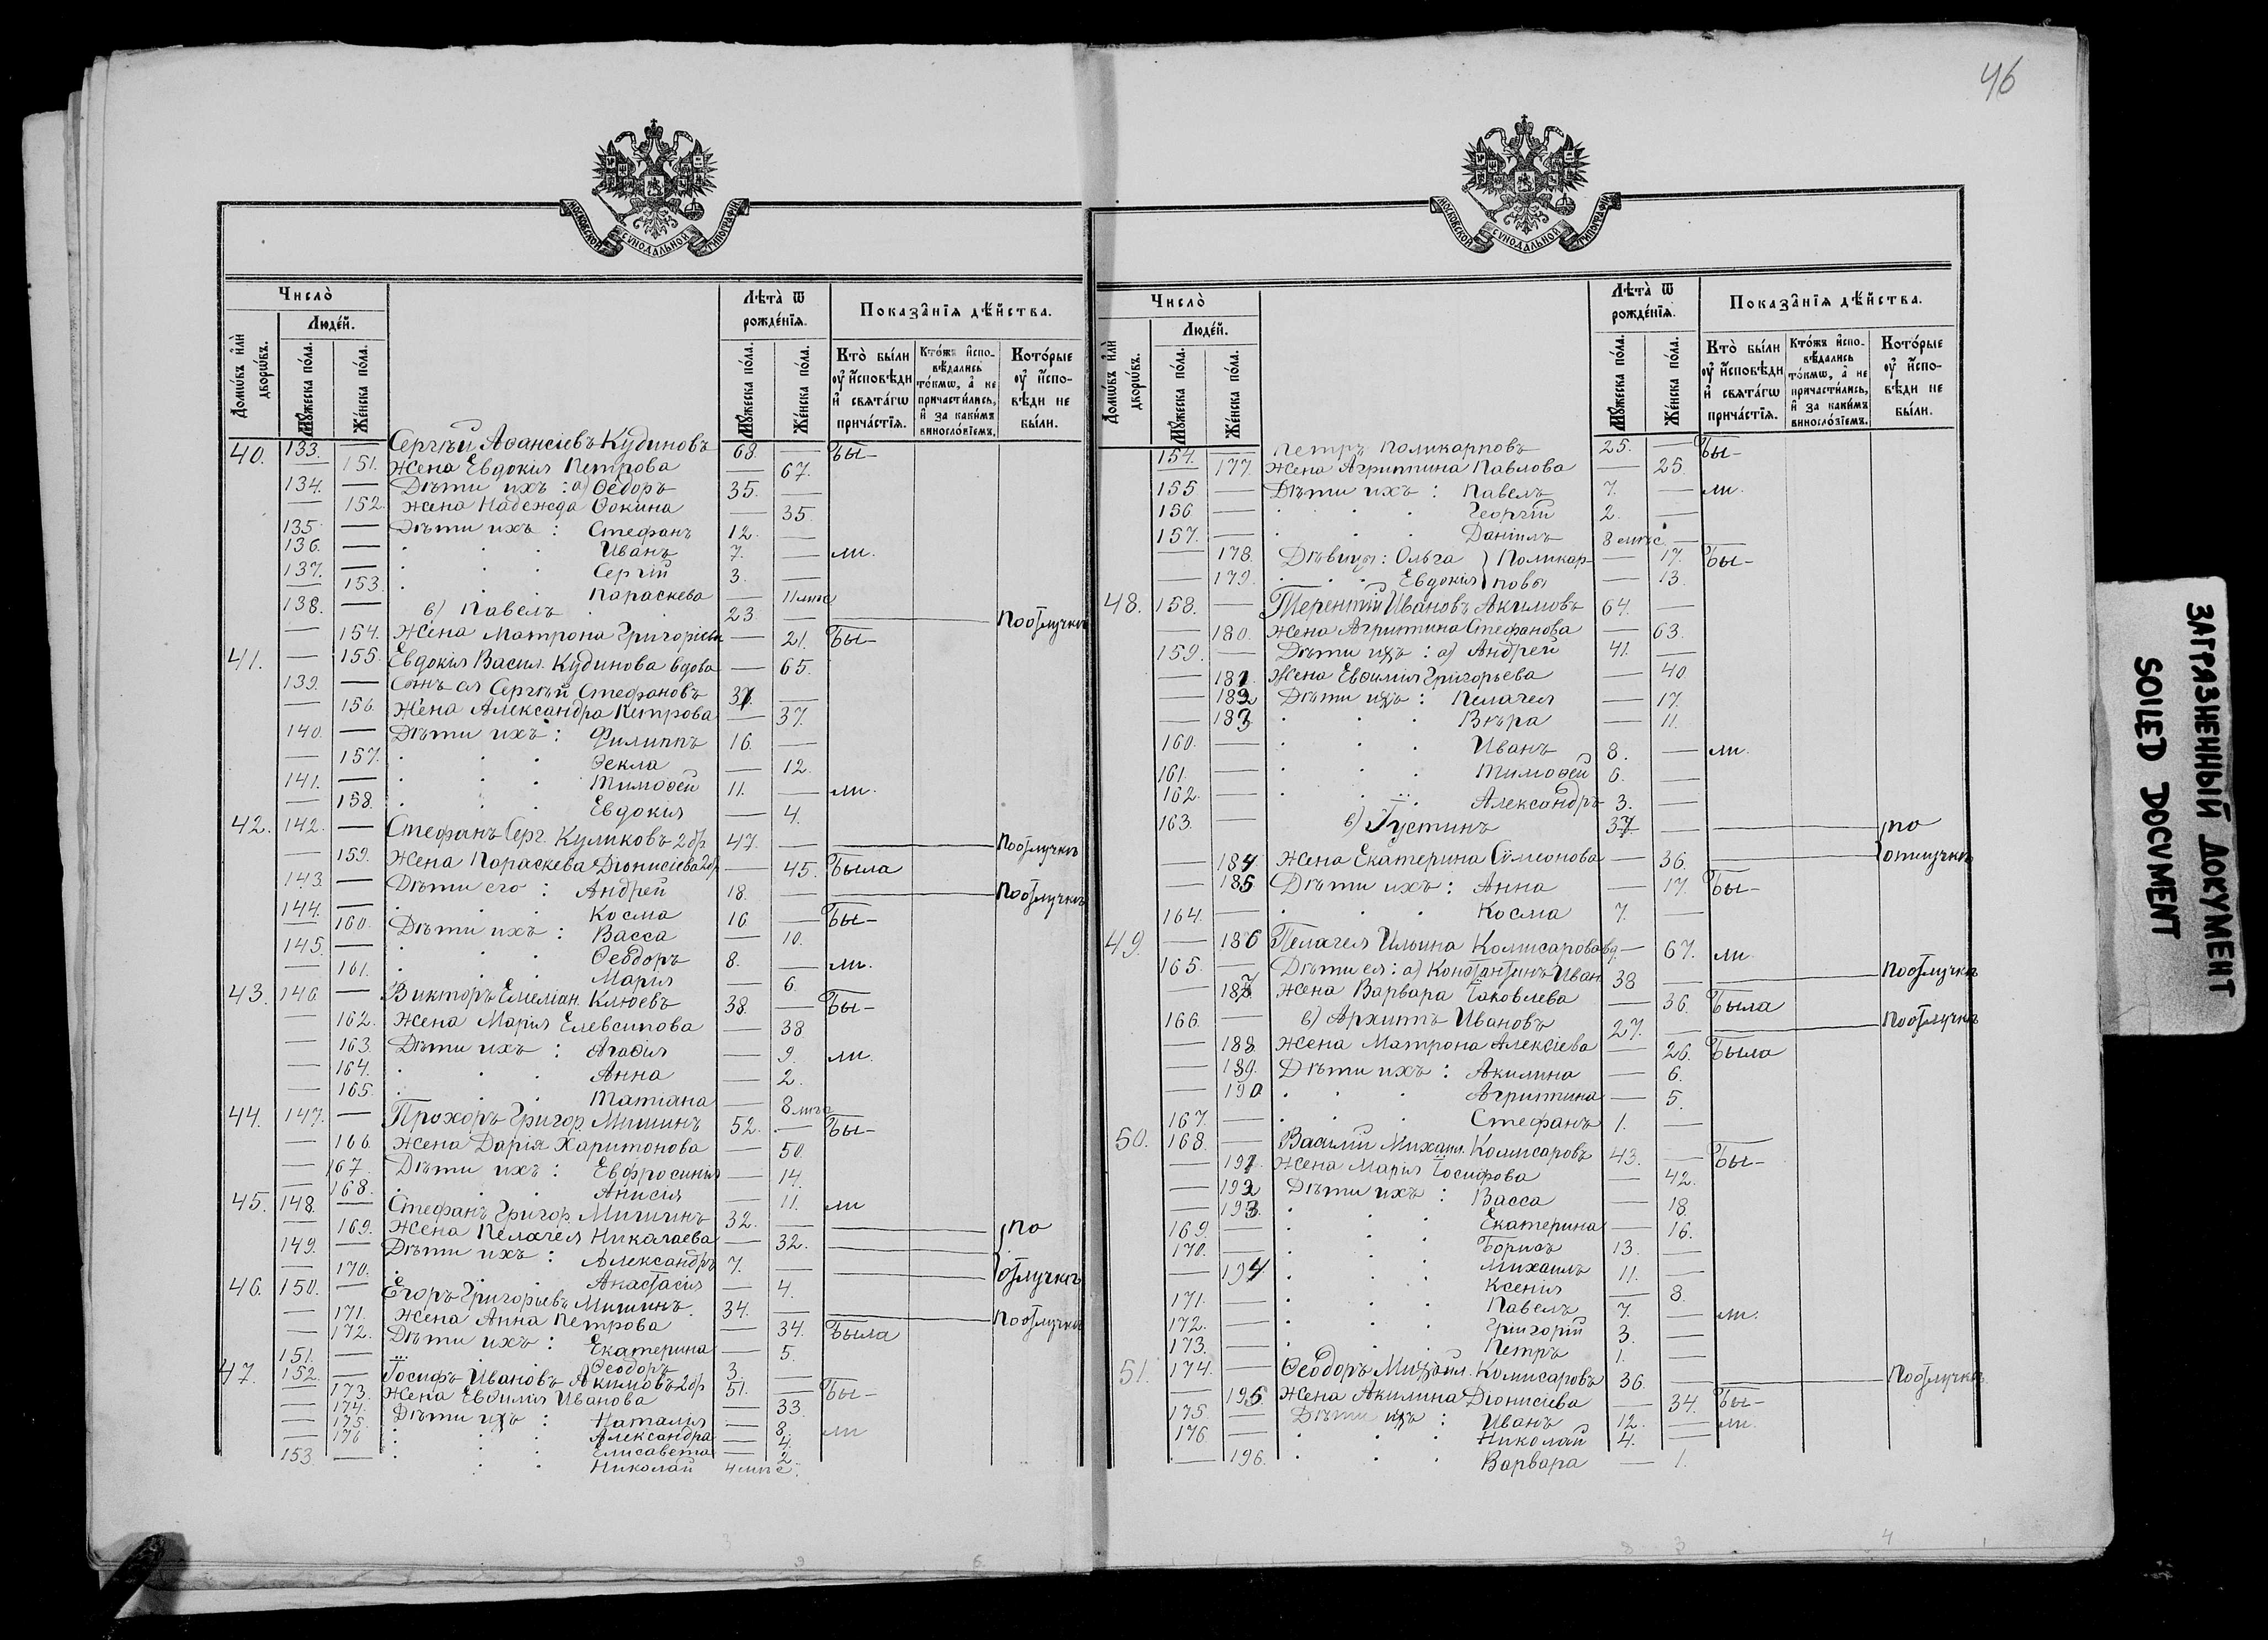 46
МОСКОВСКОЙ СУНОДАЛЬНОЙ ТИПОГРАФІИ
Число̀
Домѡвъ и҆лѝ дворѡвъ.
Люде́й.
Мꙋ́жеска по́ла.
Же́нска по́ла.
Лѣта̀ ѿ рожде́нїѧ.
Мꙋ́жеска по́ла.
Же́нска по́ла.
Показа̑нїѧ дѣ́йства.
Кто̀ бы́ли оу҆ и҆́сповѣди и҆ свѧта́гѡ прича́стїѧ.
Кто́жъ и҆спо-вѣ́дались то́кмѡ, а҆ не причасти́лись, и҆ за каки́мъ винослѡ́вїемъ.
Кото́рые оу҆ и҆́спо-вѣди не бы́ли.
40. 133. — Сергѣй Аѳансіевъ Кудиновъ 68. — Бы-
— 151. Жена Евдокія Петрова — 67.
134. — Дѣти ихъ: а) Ѳедоръ 35. —
— 152. Жена Надежда Ѳокина — 35.
135. — Дѣти ихъ: Стефанъ 12. —
136. — Иванъ 7. — ли.
137. — Сергій 3. —
— 153. Параскева — 11 мѣс
138. — в) Павелъ 23. — По отлучкѣ
— 154. Жена Матрона Григоріева — 21. Бы-
41. — 155. Евдокія Васил. Кудинова вдова — 65.
139. — Сынъ ея Сергѣй Стефановъ 37. —
— 156. Жена Александра Петрова — 37.
140. — Дѣти ихъ: Филиппъ 16. —
— 157. Ѳекла — 12.
141. — Тимоѳей 11. — ли.
— 158. Евдокія — 4.
42. 142. — Стефанъ Серг. Куликовъ 2 бр 47. — По отлучкѣ
— 159. Жена Параскева Діонисіева 2 бр — 45. Была
143. — Дѣти его: Андрей 18. — По отлучкѣ
144. — Косма 16 — Бы-
— 160. Дѣти ихъ: Васса — 10.
145. — Ѳеодоръ 8. — ли.
— 161. Марія — 6.
43. 146. — Викторъ Емеліан. Клюевъ 38. — Бы-
— 162. Жена Марія Елевсипова — 38
— 163. Дѣти ихъ: Агаѳія — 9. ли.
— 164. Анна — 2.
— 165. Татіана — 8 мѣс
44. 147. — Прохоръ Григор. Мишинъ 52. — Бы-
— 166. Жена Дарія Харитонова — 50.
— 167. Дѣти ихъ: Евфросинія — 14.
— 168. Анисія — 11. ли
45. 148. — Стефанъ Григор. Мишинъ 32. —
— 169. Жена Пелагея Николаева — 32. — по
149. — Дѣти ихъ: Александръ 7. —
— 170. Анастасія — 4. — отлучкѣ
46. 150. — Егоръ Григорьевъ Мишинъ 34. — По отлучкѣ
— 171. Жена Анна Петрова — 34. Была
— 172. Дѣти ихъ: Екатерина — 5.
151. — Ѳеодоръ 3. —
47. 152. — Іосифъ Ивановъ Акимовъ 2 бр 51. — Бы-
— 173. Жена Евѳимія Иванова — 33.
— 174. Дѣти ихъ: Наталія — 8. ли
— 175. Александра — 4.
— 176 Елисавета — 2.
153. — Николай 4 мѣс.
Число̀
Домѡвъ и҆лѝ дворѡвъ.
Люде́й.
Мꙋ́жеска по́ла.
Же́нска по́ла.
Лѣта̀ ѿ рожде́нїѧ.
Мꙋ́жеска по́ла.
Же́нска по́ла.
Показа̑нїѧ дѣ́йства.
Кто̀ бы́ли оу҆ и҆́сповѣди и҆ свѧта́гѡ прича́стїѧ.
Кто́жъ и҆спо-вѣ́дались то́кмѡ, а҆ не причасти́лись, и҆ за каки́мъ винослѡ́вїемъ.
Кото́рые оу҆ и҆́спо-вѣди не бы́ли.
МОСКОВСКОЙ СУНОДАЛЬНОЙ ТИПОГРАФІИ
154. — Петръ Поликарповъ 25. — Бы-
— 177. Жена Агриппина Павлова — 25.
155 — Дѣти ихъ: Павелъ 7. — ли.
156 — Георгій 2. —
157. — Даніилъ 8 мѣс.
— 178. Дѣвицы: Ольга } Поликар- — 17. Бы-
— 179. Евдокія } повы — 13.
48. 158. — Терентій Ивановъ Акимовъ 64. —
— 180. Жена Агриппина Стефанова — 63.
159. — Дѣти ихъ: а) Андрей 41. —
— 181. Жена Евѳимія Григорьева — 40
— 182 Дѣти ихъ: Пелагея — 17.
— 183 Вѣра — 11.
160. — Иванъ 8. — ли.
161. — Тимоѳей 6. —
162. — Александръ 3. —
163. — в) Іустинъ 37 — по
— 184 Жена Екатерина Сѷмеонова — 36. — отлучкѣ
— 185 Дѣти ихъ: Анна — 17. Бы-
164. — Косма 7. —
49. — 186 Пелагея Ильина Комисарова вд — 67. ли
165. — Дѣти ея: а) Константинъ Иван 38 — По отлучкѣ
— 187 Жена Варвара Іаковлева — 36. Была
166. — в) Архиппъ Ивановъ 27. — По отлучкѣ
— 188. Жена Матрона Алексіева — 26. Была
— 189. Дѣти ихъ: Акилина — 6.
— 190 Агриппина — 5.
167. — Стефанъ 1. —
50. 168. — Василій Михаил. Комисаровъ 43. — Бы-
— 191. Жена Марія Іосифова — 42.
— 192 Дѣти ихъ: Васса — 18
— 193. Екатерина — 16.
169. — Борисъ 13. —
170. — Михаилъ 11. —
— 194 Ксенія — 8.
171. — Павелъ 7. — ли.
172. — Григорій 3. —
173. — Петръ 1. —
51. 174. — Ѳеодоръ Михаил. Комисаровъ 36. — По отлучкѣ
— 195 Жена Акилина Діонисіева — 34. Бы-
175. — Дѣти ихъ: Иванъ 12. — ли.
176. — Николай 4. —
— 196. Варвара — 1.
ЗАГРЯЗНЕННЫЙ ДОКУМЕНТ
SOILED DOCUMENT